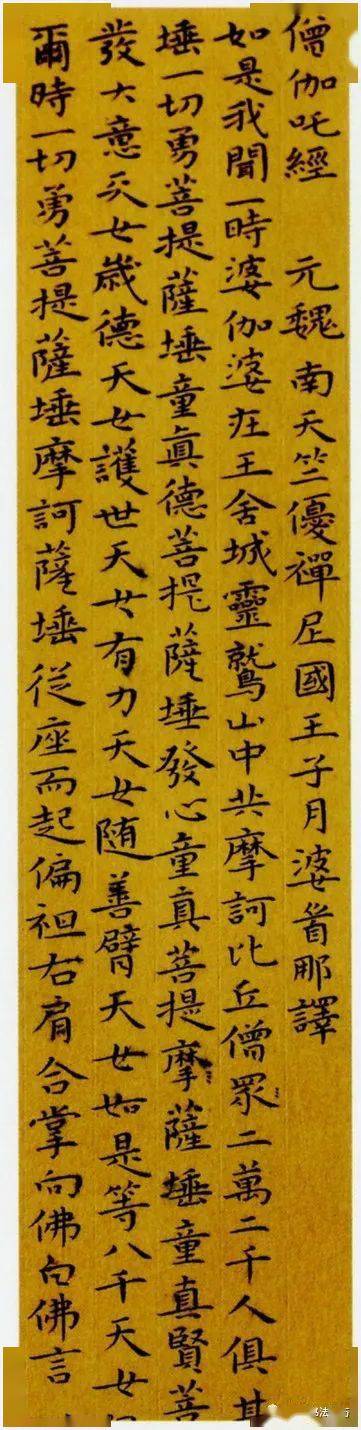 僧伽吒經 元魏南天竺優禪尼國王子月婆首那譯
如是我聞一時婆伽婆在王舍城靈鷲山中共摩訶比丘僧眾二萬二千人俱其
埵一切勇菩提薩埵童真德菩提薩埵發心童真菩提摩薩埵童真賢菩
發大意天女嵗德天女護世天女有力天女随善臂天女如是等八千天女
爾時一切勇菩提薩埵摩訶薩埵從座而起偏袒右肩合掌向佛白佛言